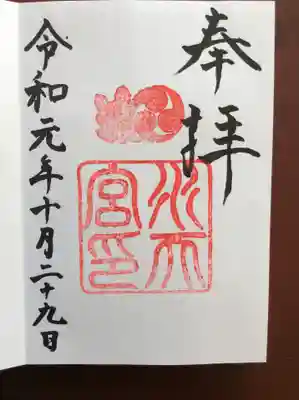 奉拝
水天
宮印
令和元年十月二十九日